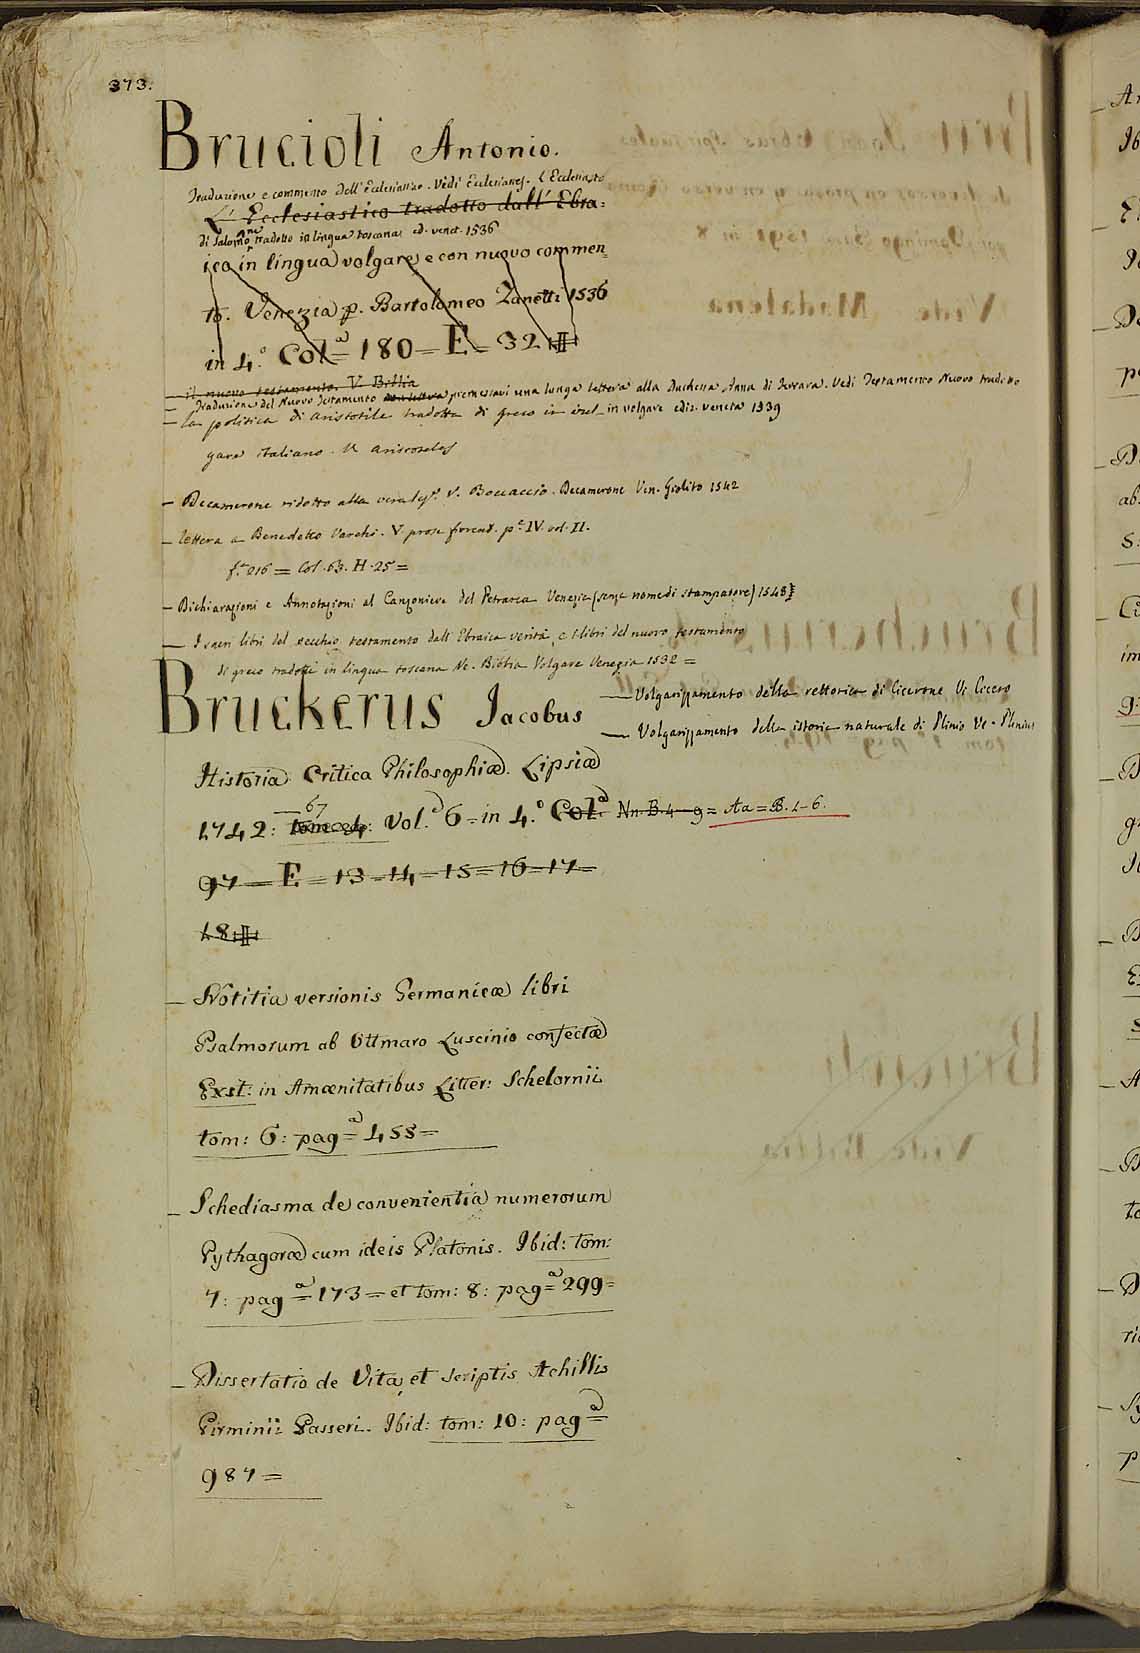 373.
Brucioli Antonio.
Traduzione e commento dell'Ecclesiastico. Vedi Ecclesiastes. L'Ecclesiaste
L'Ecclesiastico tradotto dall'Ebra=
di Salomone tradotto in lingua toscana ed. venet. 1536
ico in lingua volgare e con nuovo commen=
to. Venezia p. Bartolomeo Zanetti 1536
in 4.° Col.a= 180=E=32
il nuovo testamento. V. Biblia
Traduzione del Nuovo Testamento premessavi una lunga lettera alla Duchessa Anna di Ferrara. Vedi Testamento Nuovo tradotto
in volgare ediz. veneta 1539
– La politica di Aristotile tradotta di greco in vol=
gare italiano. V. Aristoteles
– Decamerone ridotto alla V. Boccaccio. Decamerone Ven. Giolito 1542
– lettera a Benedetto Varchi. V. prose fiorent. p.e IV. vol. II.
f.a 216 = Col. 63. H. 25=
– Dichiarazioni e Annotazioni al Canzoniere del Petrarca Venezia (senza nome di stampatore) 1548
– I sacri libri del vecchio testamento dall'Ebraica verità, e i libri del nuovo testamento
di greco tradotti in lingua toscana Ve. Biblia Volgare Venezia 1532 =
– Volgarizzamento della rettorica di Cicerone Vi Cicero
– Volgarizzamento della istoria naturale di Plinio Ve. Plinius
Bruckerus Jacobus
Historia Critica Philosophiæ. Lipsiæ
67
1742: tom: Vol. 6=in 4.° Col.a Nn. B. 4–9= Aa=B. 1–6.
97=E=13=14=15=16=17=
18
– Notitia versionis Germanicæ libri
Psalmorum ab Ottmaro Luscinio confectæ
Exst: in Amœnitatibus Litter: Schelornii
tom: 6: pag.a= 455=
– Schediasma de convenientia numerorum
Pythagoræ cum ideis Platonis. Ibid: tom:
7: pag.a= 173=et tom: 8: pag.a= 299=
– Dissertatio de Vita, et scriptis Achillis
Pirminii Gasseri. Ibid: tom: 10: pag.a=
987=